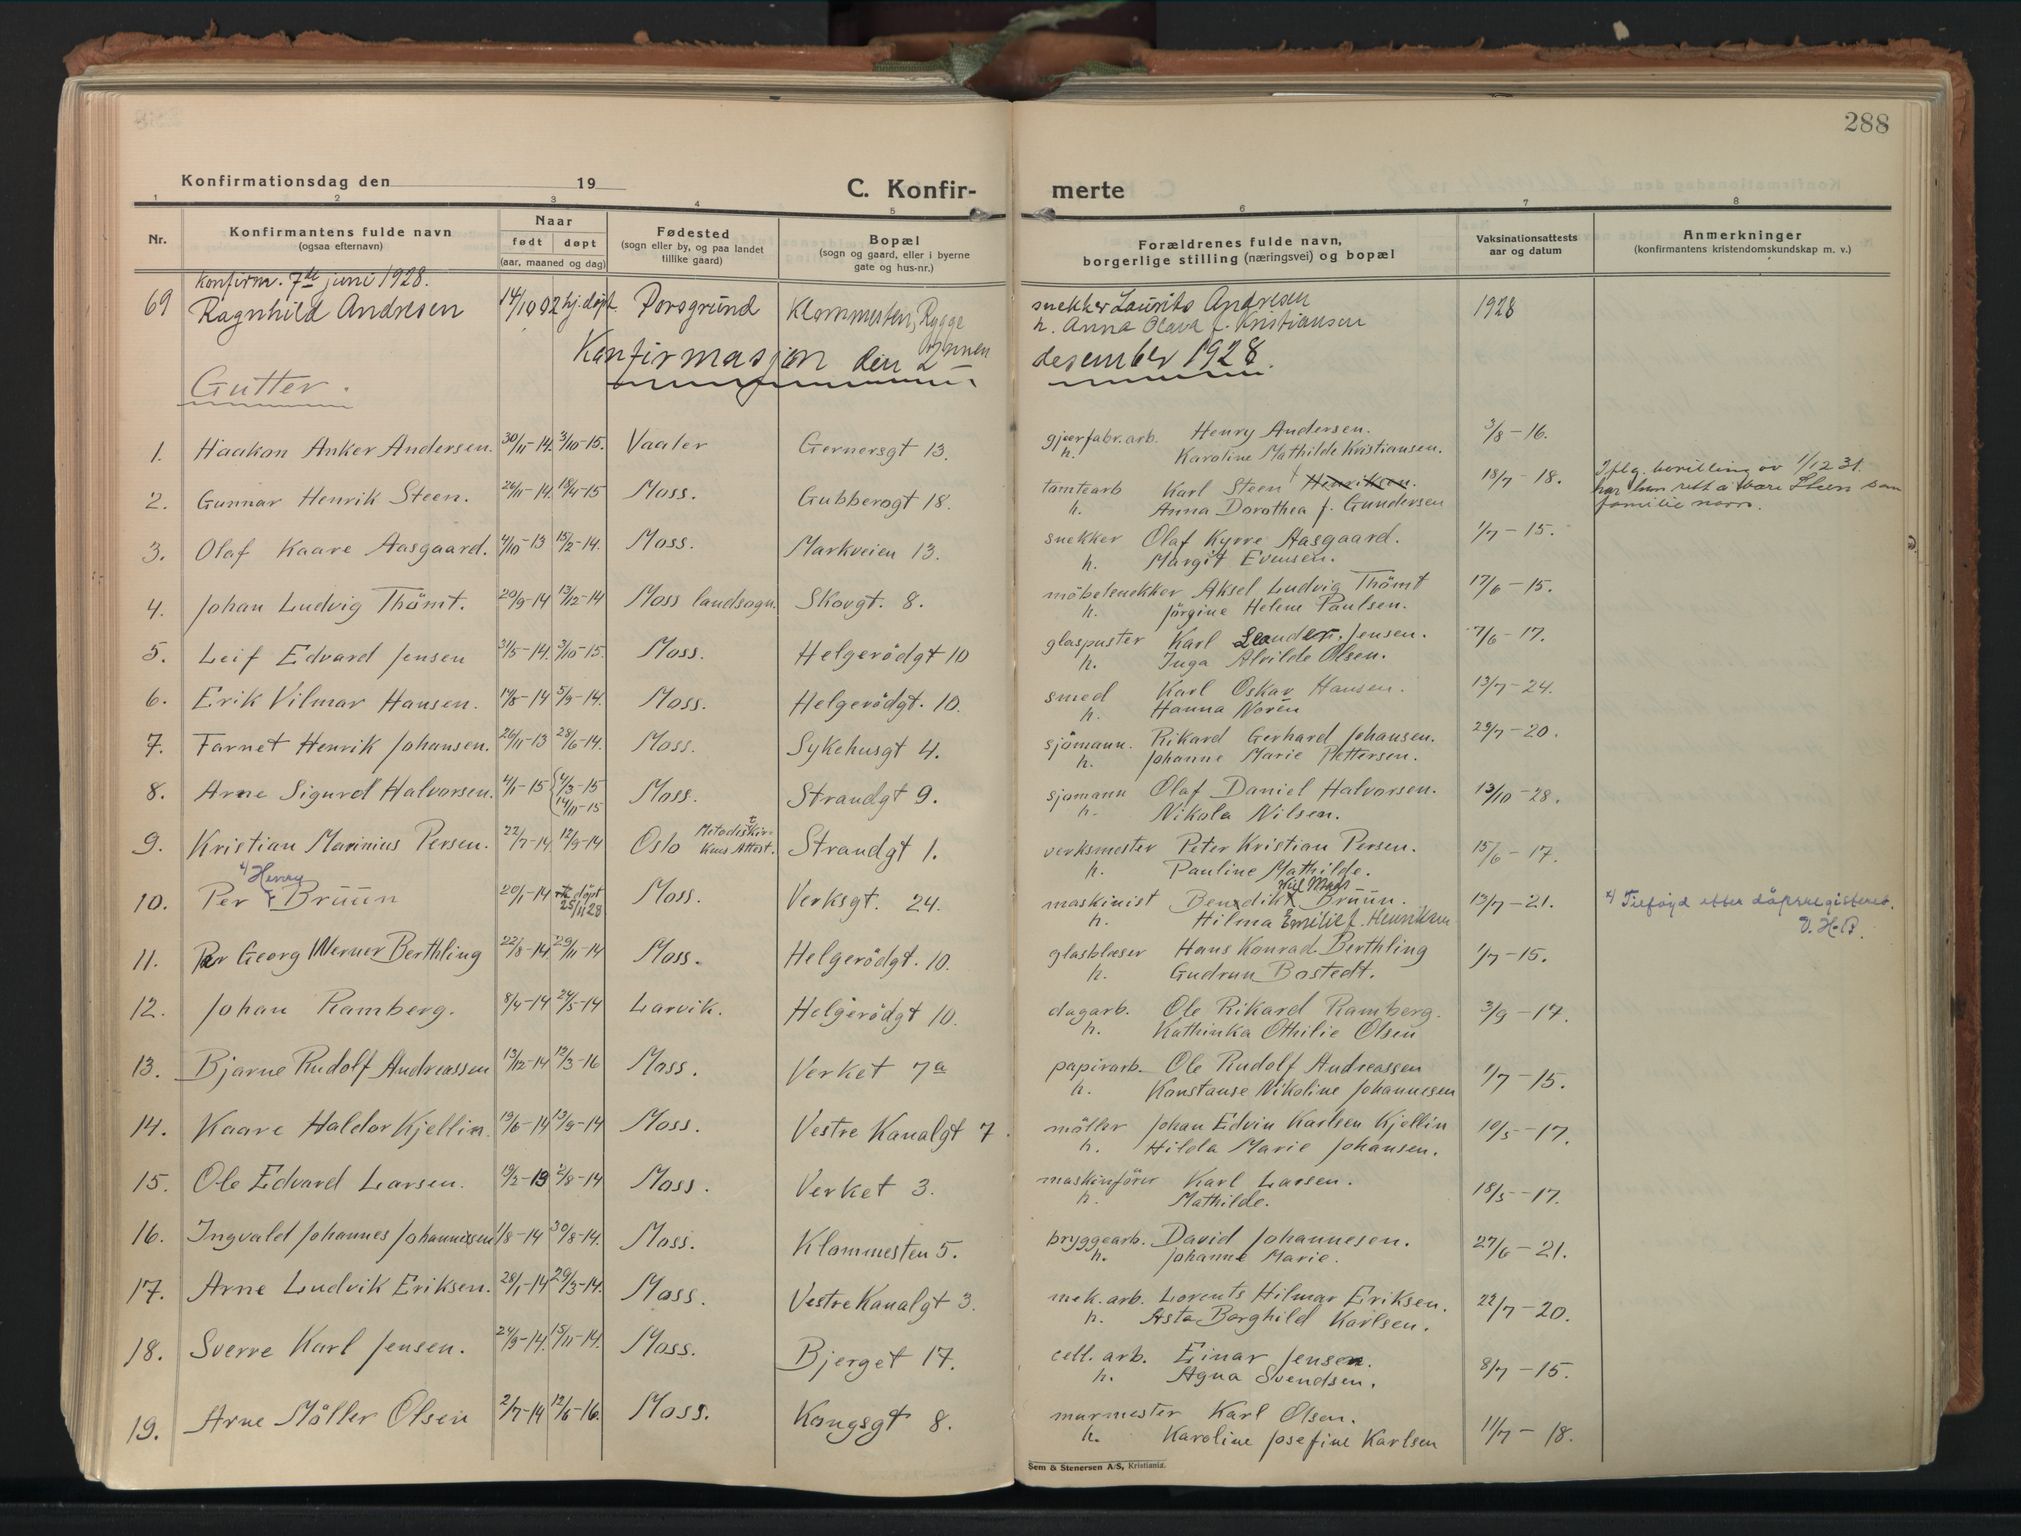 288
Konfirmationsdag den 19
C. Konfirmerte
1 2 3 4 5 6 7 8
Nr. Konfirmantens fulde navn (ogsaa efternavn) Naar født døpt (aar, maaned og dag) Fødested (sogn eller by, og paa landet tillike gaard) Bopæl (sogn og gaard, eller i byerne gate og hus-nr.) Forældrenes fulde navn, borgerlige stilling (næringsvei) og bopæl Vaksinationsattests aar og datum Anmerkninger (konfirmantens kristendomskundskap m. v.)
Konfirm. 7de juni 1928.
69 Ragnhild Andresen 14/10 02 hj.døpt Porsgrund Klommesten, Rygge snekker Laurits Andresen 1928
h. Anna Olava f. Kristiansen
Konfirmasjon den 2 desember 1928.
Gutter.
1. Haakon Anker Andersen. 30/11-14. 3/10-15. Vaaler Gernersgt 13. gjærfabr.arb. Henry Andersen. 3/8-16.
h. Karoline Mathilde Kristiansen.
2. Gunnar Henrik Steen. 26/11-14. 18/4-15 Moss. Gubberogt 18. tomtearb Karl Steen Henriksen. 18/7-18. Iflg. bevilling av 1/12 31.
h. Anna Dorothea f. Gundersen har han rett å bære Steen som
familie navn.
3. Olaf Kaare Aasgaard. 4/10-13 15/2-14. Moss. Markveien 13. snekker Olaf Kyrre Aasgaard. 1/7-15.
h. Margit Evensen.
4. Johan Ludvig Thömt. 20/9-14 13/12-14 Moss landsogn. Skovgt. 8. möbelsnekker Aksel Ludvig Thömt 17/6-15.
h. Jörgine Helene Paulsen.
5. Leif Edvard Jensen 31/5-14. 3/10-15. Moss. Helgerödgt 10 glaspuster Karl Leander Jensen. 7/6-17.
h. Inga Alvilde Olsen.
6. Erik Vilmar Hansen. 17/8-14 5/9-14. Moss. Helgerödgt. 10. smed Karl Oskar Hansen. 13/7-24.
h. Hanna Norén
7. Farnet Henrik Johansen. 26/11-13 28/6-14. Moss. Sykehusgt 4. sjömann. Rikard Gerhard Johansen. 23/7-20.
h. Johanne Marie Pettersen.
8. Arne Sigurd Halvorsen. 4/1-15 4/3-15 14/11-15 Moss. Strandgt 9. sjömann Olaf Daniel Halvorsen. 13/10-28.
h. Nikola Nilsen.
9. Kristian Marinius Persen. 22/7-14 12/9-14 Oslo Metodistkirkens Attest. Strandgt 1. verksmester Peter Kristian Persen. 15/6-17.
h. Pauline Mathilde.
10. Per Henry Bruun 20/1-14 døpt 25/11 28 Moss. Verksgt. 24. maskinist Benedikt Bruun. 13/7-21. Tilføyd etter dåpsregisteret.
h. Hilma Emilie f. Henriksen
11. Per Georg Werner Berthling 22/8-14 29/11-14 Moss. Helgerödgt. 10. glasblæser Hans Konrad Berthling 1/7-15.
h. Gudrun Bostedt.
12. Johan Ramberg. 8/4-14 24/5-14 Larvik. Helgerödgt 10. dagarb. Ole Rikard Ramberg. 3/9-17.
h. Kathinka Othilie Olsen
13. Bjarne Rudolf Andreassen 13/12-14 12/3-16 Moss. Verket 7a papirarb. Ole Rudolf Andreassen 1/7-15.
h. Konstanse Nikoline Johannesen
14. Kaare Haldor Kjellin. 19/6-14 13/9-14 Moss. Vestre Kanalgt 7. möller Johan Edvin Karlsen Kjellin 10/5-17.
h. Hilda Marie Johansen.
15. Ole Edvard Larsen. 19/2-13 2/8-14 Moss. Verket 3. maskinförer Karl Larsen. 18/5-17.
h. Mathilde.
16. Ingvald Johannes Johannessen 11/8-14 30/8-14. Moss. Klommesten 5. bryggearb. David Johannesen. 27/6-21.
h. Johanne Marie.
17. Arne Ludvik Eriksen. 28/1-14 29/3-14. Moss. Vestre Kanalgt 3. mek. arb. Lorents Hilmar Eriksen. 22/7-20.
h. Asta Borghild Karlsen.
18. Sverre Karl Jensen. 24/9-14. 15/11-14. Moss. Bjerget 17. cell. arb. Einar Jensen. 8/7-15.
h. Agna Svendsen.
19. Arne Möller Olsen 2/7-14 12/6-16. Moss. Kongsgt 8. murmester Karl Olsen. 11/7-18.
h. Karoline Josefine Karlsen
Sem & Stenersen A/S, Kristiania.